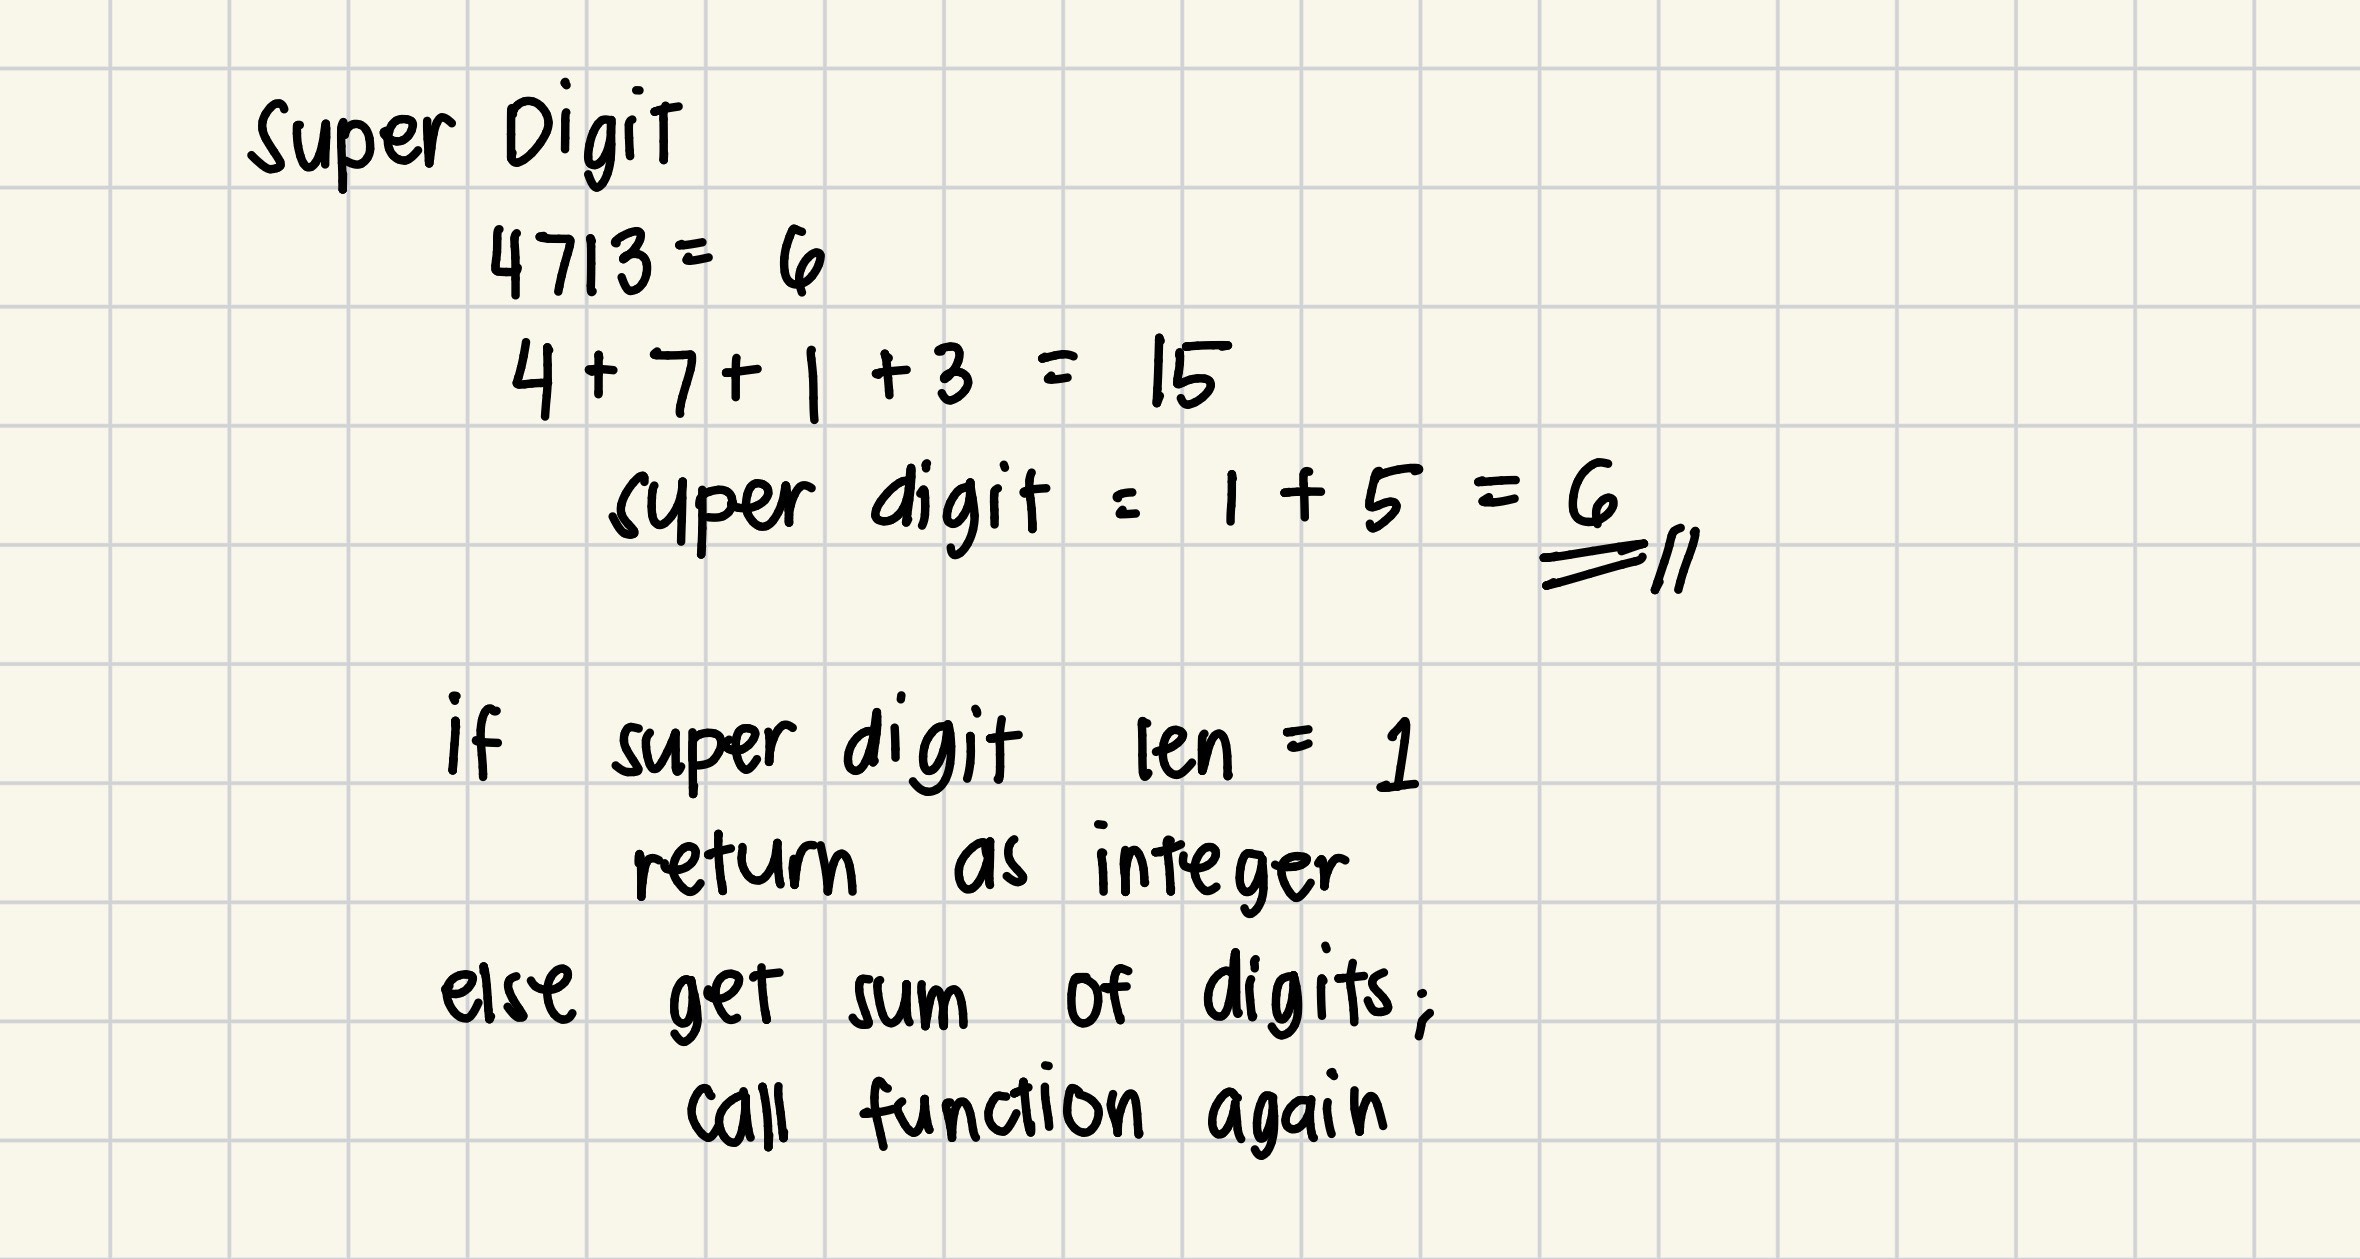 Super Digit
4713 = 6
4 + 7 + 1 + 3 = 15
super digit = 1 + 5 = 6 //
if super digit len = 1
return as integer
else get sum of digits;
call function again